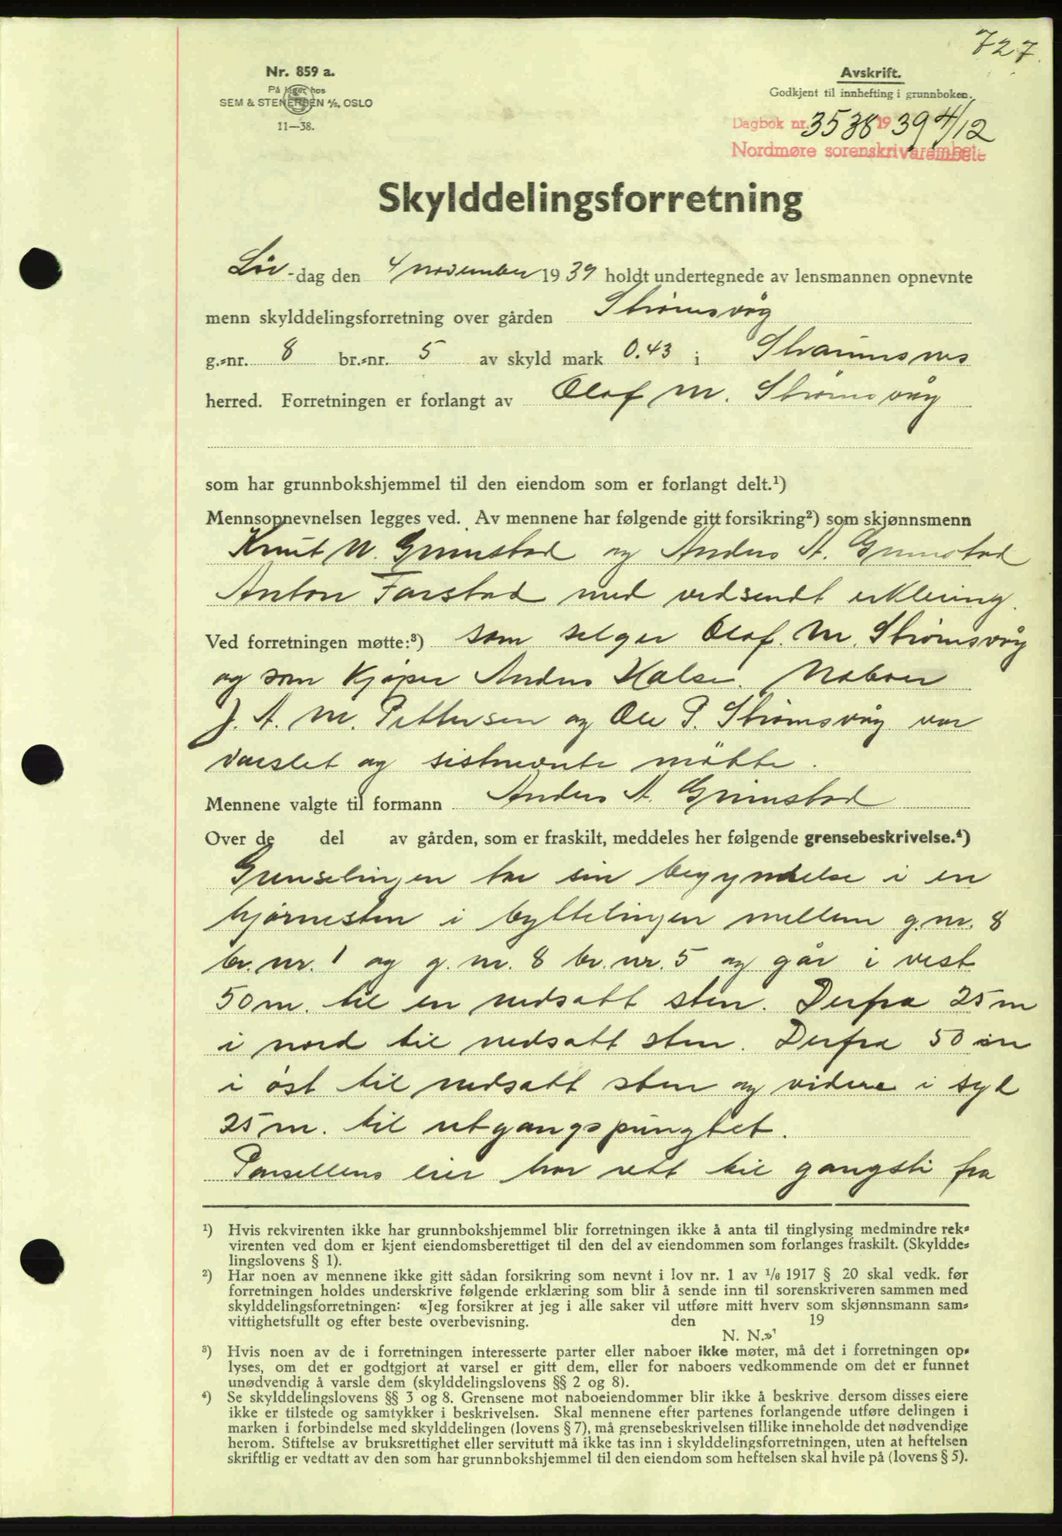 727.
Nr. 859 a.
På lager hos
SEM & STENERSEN A/S, OSLO
11—38.
Avskrift.
Godkjent til innhefting i grunnboken.
Dagbok nr. 3538 1939 4/12
Nordmøre sorenskriverembete
Skylddelingsforretning
Lør-dag den 4 november 1939 holdt undertegnede av lensmannen opnevnte
menn skylddelingsforretning over gården Strømsvåg
g.-nr. 8 br.-nr. 5 av skyld mark 0.43 i Straumsnes
herred. Forretningen er forlangt av Olaf M. Strømsvåg
som har grunnbokshjemmel til den eiendom som er forlangt delt.¹)
Mennsopnevnelsen legges ved. Av mennene har følgende gitt forsikring²) som skjønnsmenn
Knut N. Grimstad og Anders A. Grimstad
Anton Farstad med vedsendt erklering.
Ved forretningen møtte:³) som selger Olaf. M. Strømsvåg
og som kjøper Anders Halse. Naboer
J. A. M. Pettersen og Ole P. Strømsvåg var
varslet og sistnevnte møtte.
Mennene valgte til formann Anders A. Grimstad
Over de del av gården, som er fraskilt, meddeles her følgende grensebeskrivelse.⁴)
Grenselinjen tar sin begyndelse i en
hjørnesten i byttelinjen mellem g.nr. 8
br. nr. 1 og g. nr. 8 br. nr. 5 og går i vest
50 m. til en nedsatt sten. Derfra 25 m
i nord til nedsatt sten. Derfra 50 m
i öst til nedsatt sten og videre i syd
25 m. til utgangspungtet.
Parsellens eier har rett til gangsti fra
¹) Hvis rekvirenten ikke har grunnbokshjemmel blir forretningen ikke å anta til tinglysing medmindre rek-
virenten ved dom er kjent eiendomsberettiget til den del av eiendommen som forlanges fraskilt. (Skyldde-
lingslovens § 1).
²) Har noen av mennene ikke gitt sådan forsikring som nevnt i lov nr. 1 av 1/6 1917 § 20 skal vedk. før
forretningen holdes underskrive følgende erklæring som blir å sende inn til sorenskriveren sammen med
skylddelingsforretningen: «Jeg forsikrer at jeg i alle saker vil utføre mitt hverv som skjønnsmann sam-
vittighetsfullt og efter beste overbevisning. den 19
N. N.»
³) Hvis noen av de i forretningen interesserte parter eller naboer ikke møter, må det i forretningen op-
lyses, om det er godtgjort at varsel er gitt dem, eller for naboers vedkommende om det er funnet
unødvendig å varsle dem (skylddelingslovens §§ 2 og 8).
⁴) Se skylddelingslovens §§ 3 og 8. Grensene mot naboeiendommer blir ikke å beskrive, dersom disses eiere
ikke er tilstede og samtykker i beskrivelsen. Skal mennene efter partenes forlangende utføre delingen i
marken i forbindelse med skylddelingen (lovens § 7), må grensebeskrivelsen tillike inneholde det nødvendige
herom. Stiftelse av bruksrettighet eller servitutt må ikke tas inn i skylddelingsforretningen, uten at heftelsen
skriftlig er vedtatt av den som har grunnbokshjemmel til den eiendom som heftelsen skal hvile på (lovens § 5).